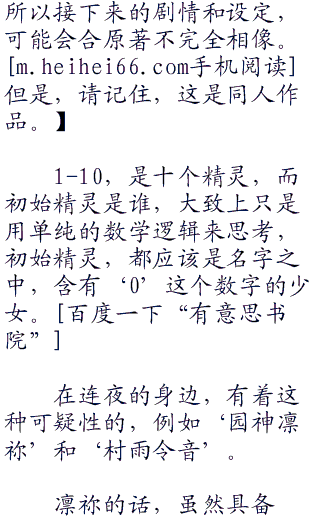 所以接下来的剧情和设定，
可能会合原著不完全相像。
[m.heihei66.com手机阅读]
但是，请记住，这是同人作
品。】
1-10，是十个精灵，而
初始精灵是谁，大致上只是
用单纯的数学逻辑来思考，
初始精灵，都应该是名字之
中，含有‘0’这个数字的少
女。[百度一下“有意思书
院”]
在连夜的身边，有着这
种可疑性的，例如‘园神凛
祢’和‘村雨令音’。
凛祢的话，虽然具备